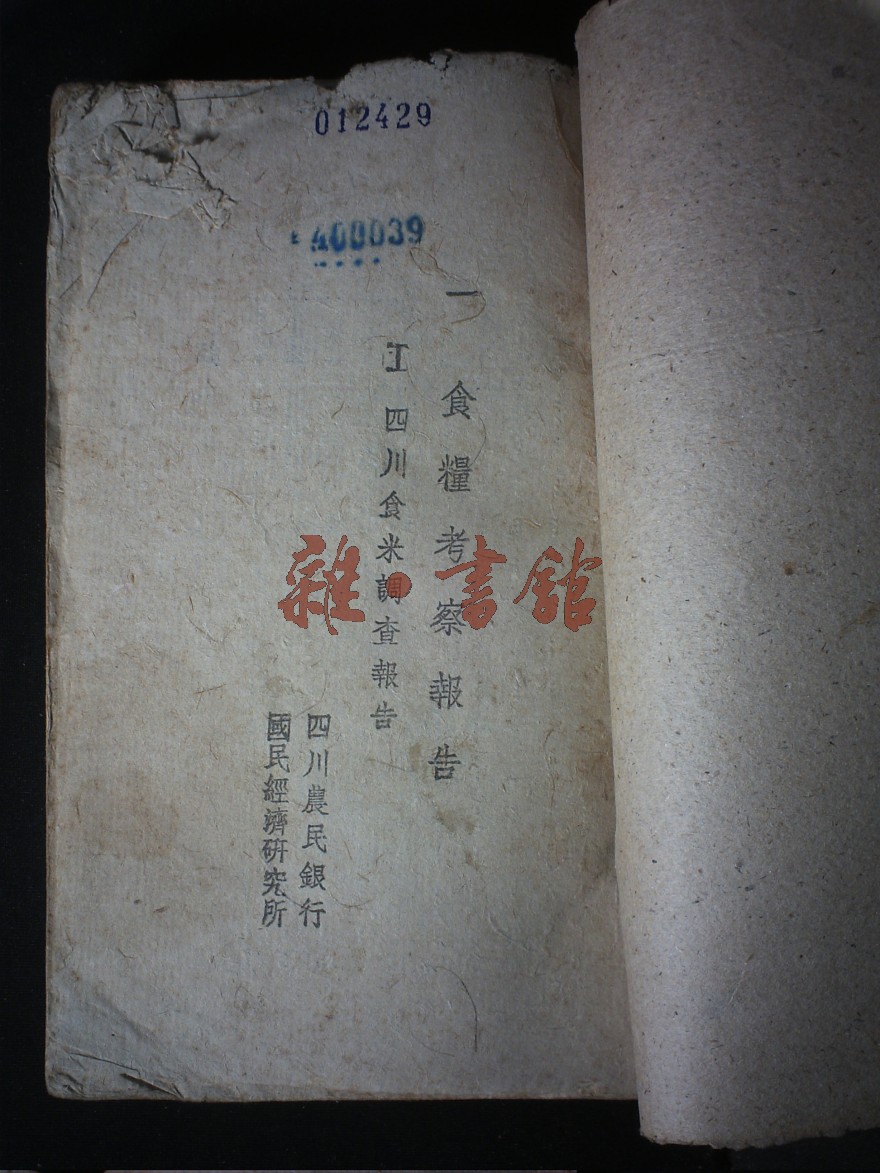 012429
A00039
一 食糧考察報告
I 四川食米調查報告
四川農民銀行
國民經濟研究所
雜·書館